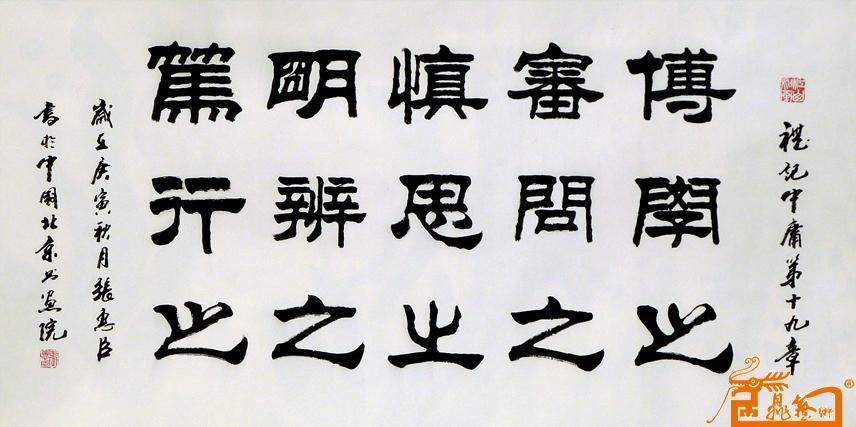 禮記中庸第十九章
博學之
審問之
慎思之
明辨之
篤行之
歲在庚寅秋月張惠臣
書於中國北京書畫院